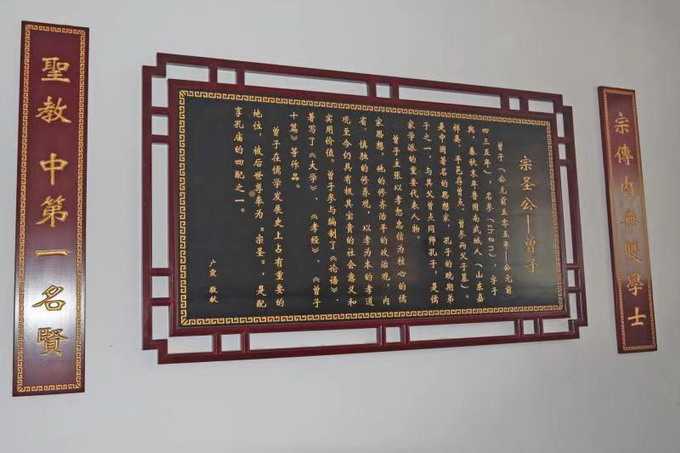 宗傳內無雙學士
宗圣公—曾子
曾子（公元前五零五年—公元前
四三五年），名参（shēn），字子
舆，春秋末年鲁国南武城人（山东嘉
祥县，平邑存曾点、曾参两父子墓）。
是中国著名的思想家，孔子的晚期弟
子之一，与其父曾点同师孔子，是儒
家学派的重要代表人物。
曾子主张以孝恕忠信为核心的儒
家思想，他的修齐治平的政治观，内
省、慎独的修养观，以孝为本的孝道
观至今仍具有极其宝贵的社会意义和
实用价值。曾子参与编制了《论语》、
著写了《大学》、《孝经》、《曾子
十篇》等作品。
曾子在儒学发展史上占有重要的
地位，被后世尊奉为“宗圣”，是配
享孔庙的四配之一。
敬献
聖教中第一名賢